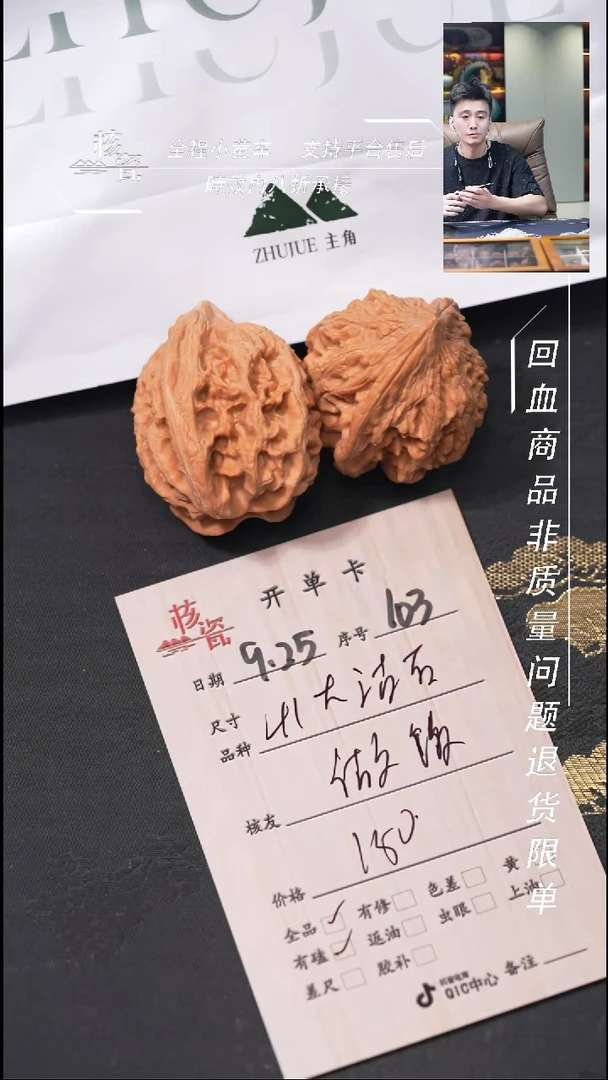 核瓷
全程小黄车 支持平台售后
时效内八折承接
ZHUJUE 主角
回血商品非质量问题退货限单
核瓷
开单卡
日期 9.25 序号 103
尺寸
品种 41大
核友
价格 180
全品 有修 色差 黄
有磕 返油 虫眼 上油
差尺 胶补
抖音电商
QIC中心 备注